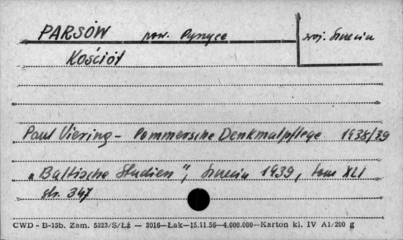 PARSÓW pow. Pyrzyce woj. Szczecin
Kościół
Paul Viering - Pommersche Denkmalpflege 1938/39
„Baltische Studien", Szczecin 1939, tom XLI
str. 347
CWD - B-15b. Zam. 5323/S/Łź — 2016—Łak—15.11.56—4.000.000—Karton kl. IV A1/200 g